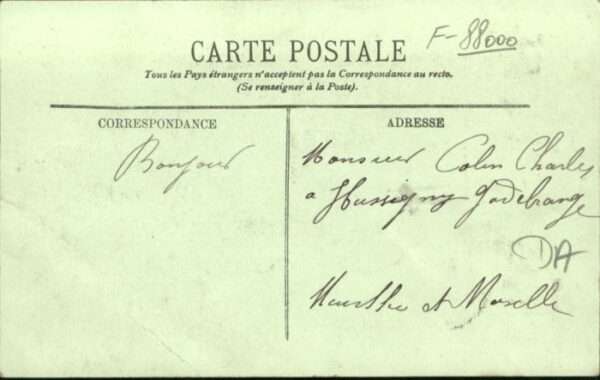 F-88000
CARTE POSTALE
Tous les Pays étrangers n'acceptent pas la Correspondance au recto.
(Se renseigner à la Poste).
CORRESPONDANCE
ADRESSE
Bonjour
Monsieur Colin Charles
a Hussigny Godebrange
DA
Meurthe et Moselle